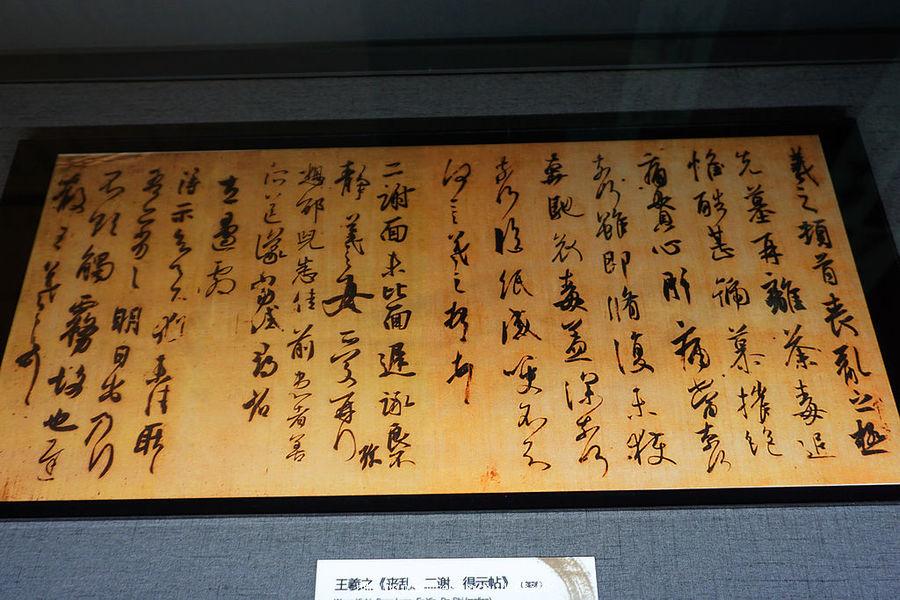 羲之頓首喪亂之極
先墓再離荼毒追
惟酷甚號慕摧絕
痛貫心肝痛當奈何
奈何雖即脩復未獲
奔馳哀毒益深奈何
奈何臨紙感哽不知
何言羲之頓首頓首
二謝面未比面遲詠良不
靜羲之女愛再拜
想邰兒悉佳前患者善
所送議當試尋省
左邊劇
得示知足下猶未佳耿耿
吾亦劣劣明日出乃行
不欲觸霧故也遲
散王羲之頓首
王羲之《丧乱、二谢、得示帖》